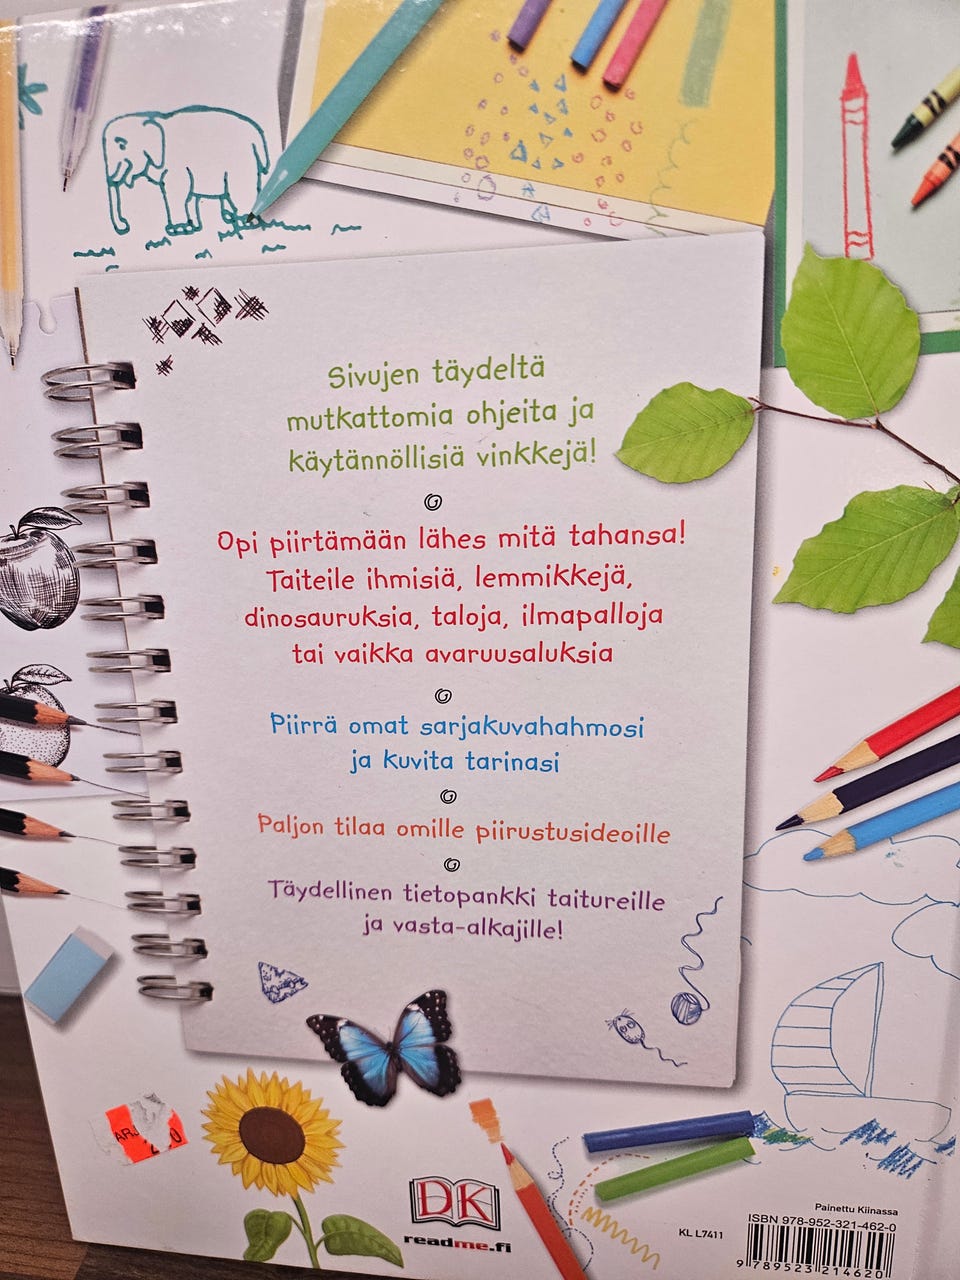 Sivujen täydeltä
mutkattomia ohjeita ja
käytännöllisiä vinkkejä!
Opi piirtämään lähes mitä tahansa!
Taiteile ihmisiä, lemmikkejä,
dinosauruksia, taloja, ilmapalloja
tai vaikka avaruusaluksia
Piirrä omat sarjakuvahahmosi
ja kuvita tarinasi
Paljon tilaa omille piirustusideoille
Täydellinen tietopankki taitureille
ja vasta-alkajille!
DK
readme.fi
KL L7411
Painettu Kiinassa
ISBN 978-952-321-462-0
9 789523 214620